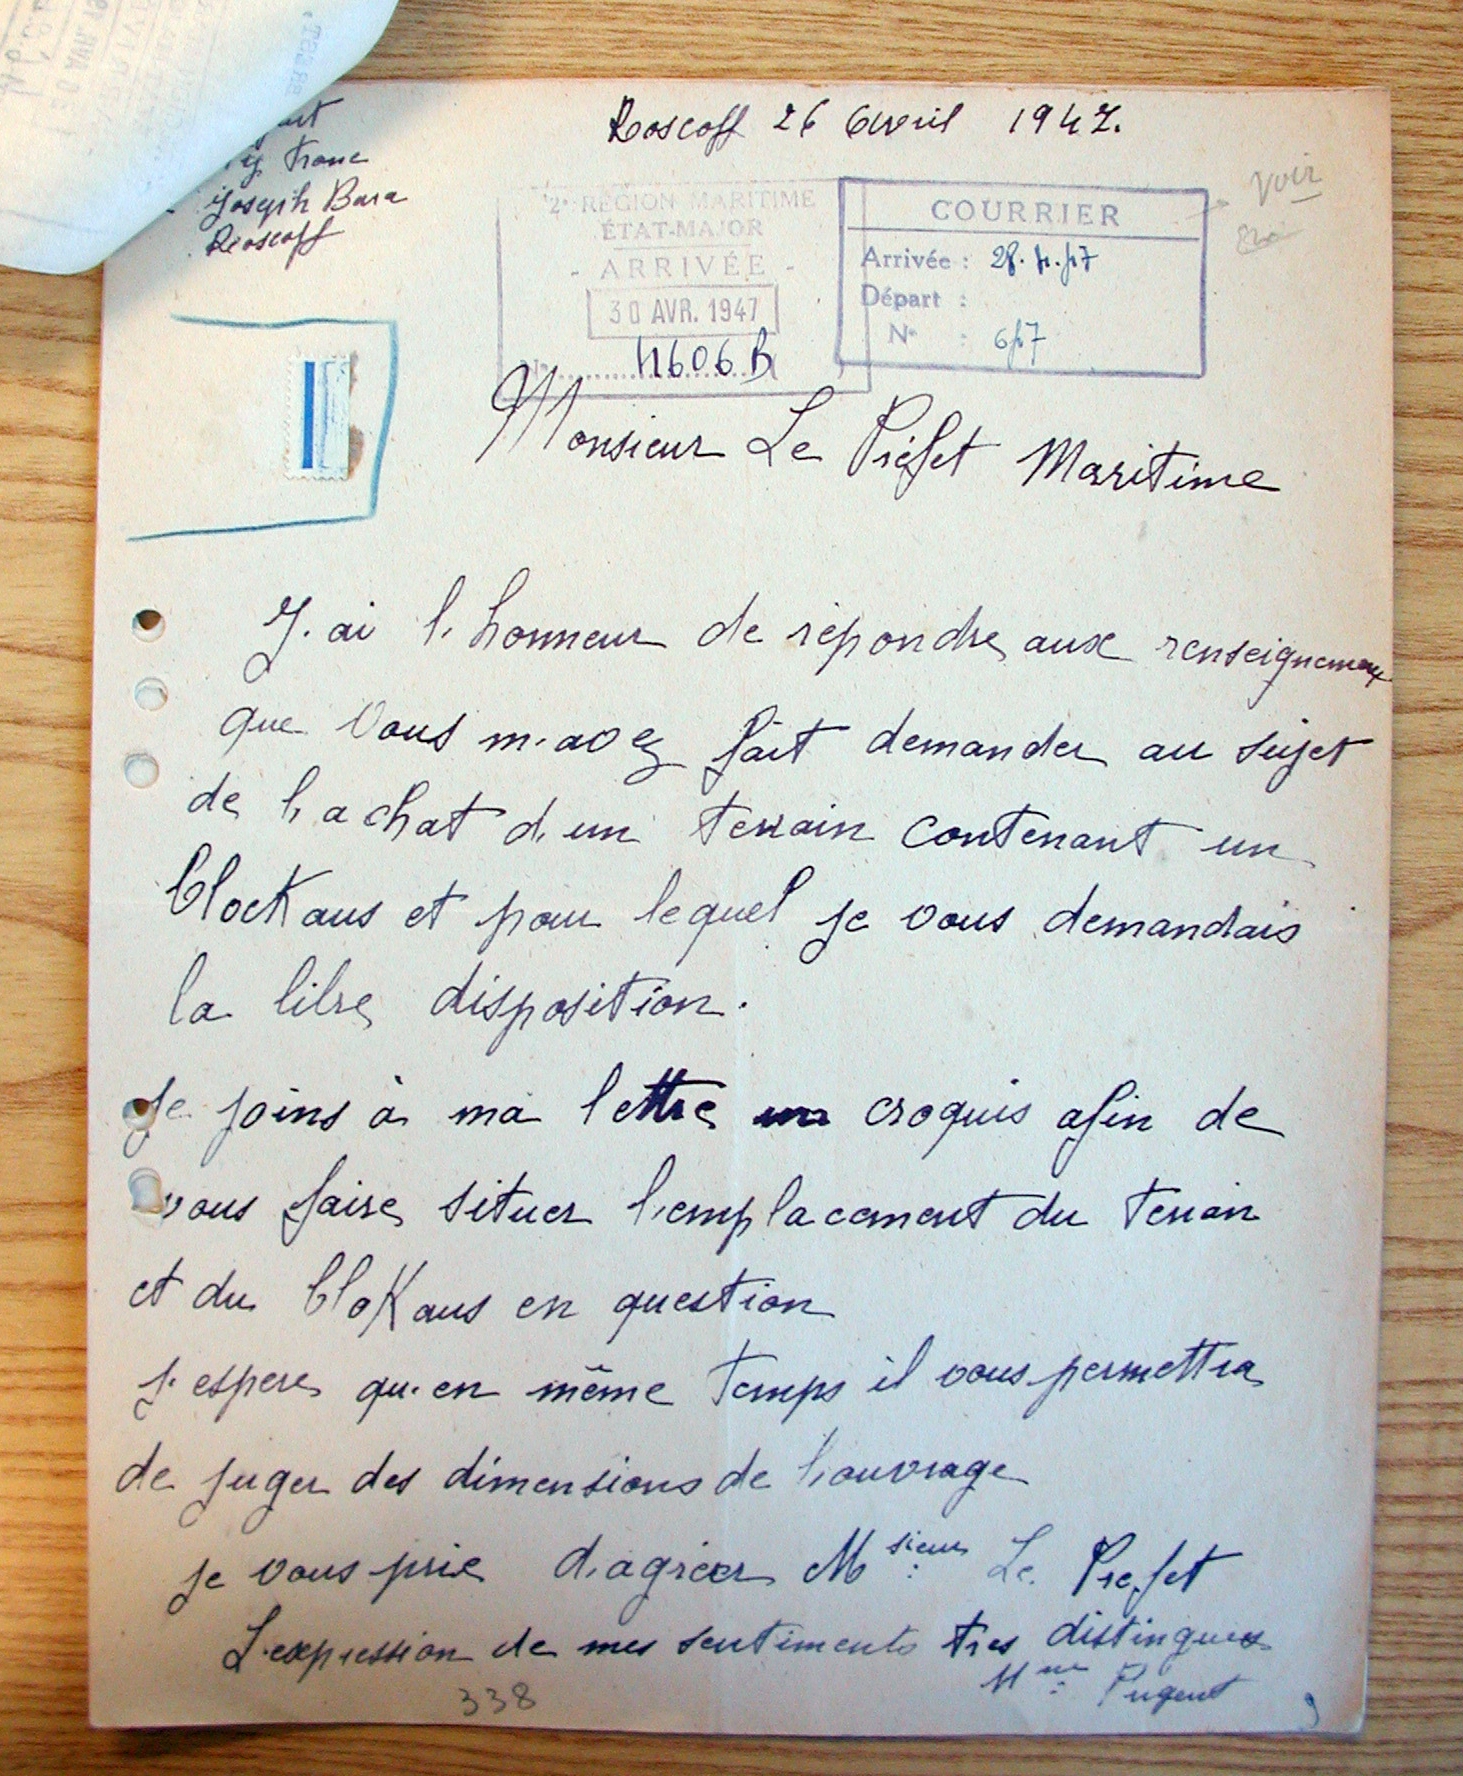 Roscoff 26 Avril 1947.
Joseph Bara
Roscoff
voir
2e REGION MARITIME
ÉTAT-MAJOR
- ARRIVÉE -
30 AVR. 1947
COURRIER
Arrivée :
Départ :
N° :
Monsieur Le Préfet Maritime
J'ai l'honneur de répondre aux
que vous m'avez fait demander au sujet
de l'achat d'un terrain contenant un
blockaus et pour lequel je vous demandais
la libre disposition.
Je joins à ma lettre un croquis afin de
vous faire situer l'emplacement du terrain
et du blokaus en question
j'espere qu'en même temps il vous permettra
de juger des dimensions de l'ouvrage
je vous prie d'agréer Msieur Le Prefet
L'expression de mes sentiments tres distingués
Mme Pugent
338
9